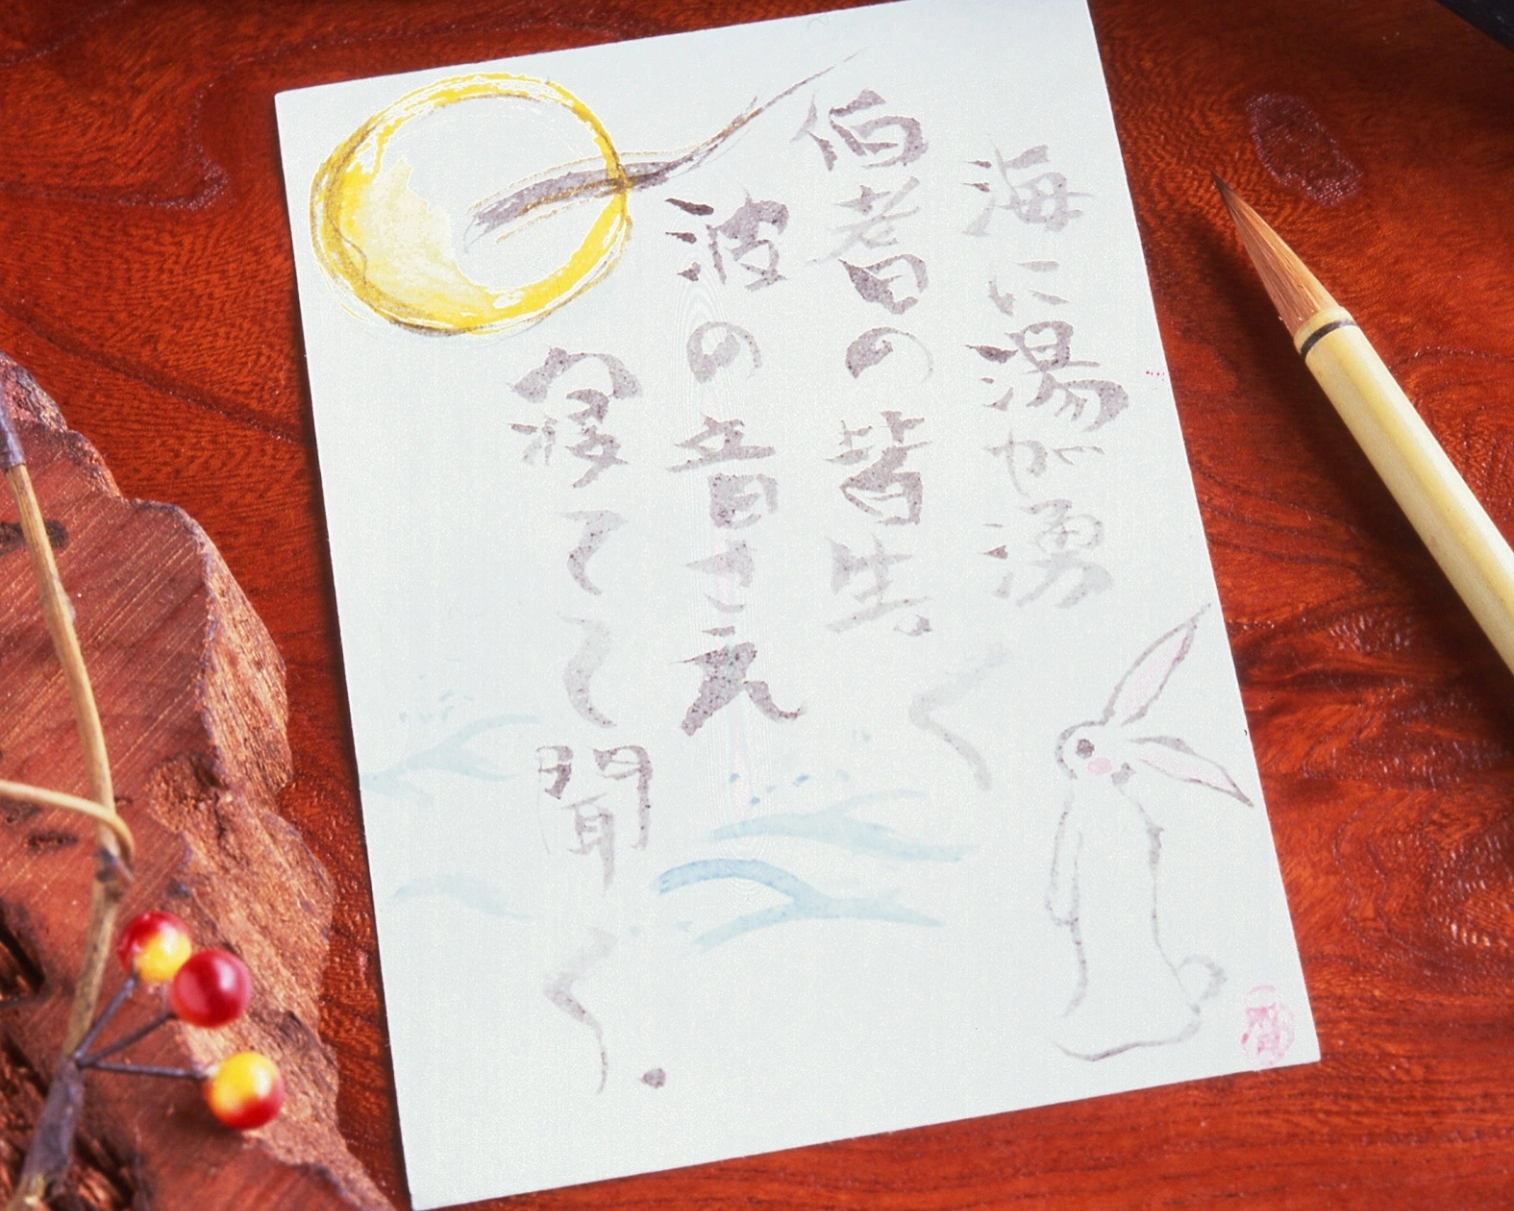 海に湯が湧く
伯耆の皆生
波の音さえ
寝てて聞く.